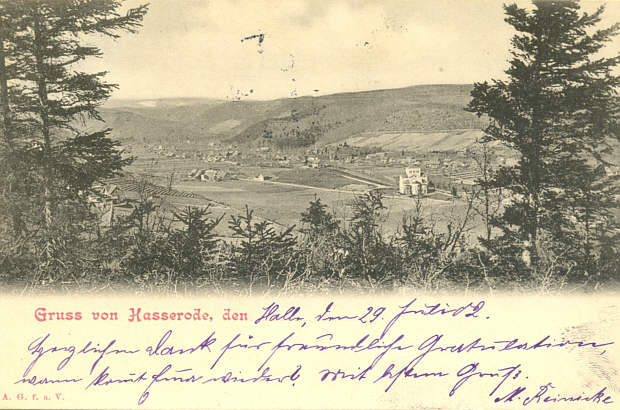 Gruss von Hasserode, den Halle, den 29. Juli 02.
Herzlichen Dank für freundliche Gratulation,
wann komt Ihr wieder? Mit bestem Gruß.
A. G. f. a. V.
M. Reinicke